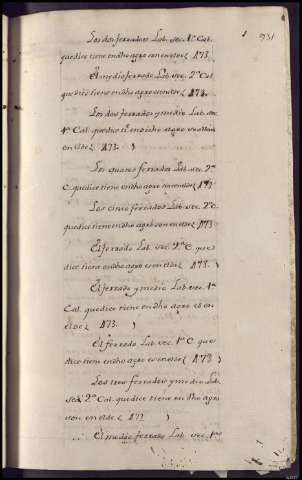 931
Los dos ferrados Lab. sec. 1ª Cal.
que dice tiene en dho agro son en el de 173.
El medio ferrado Lab. sec. 2ª Cal.
que dice tiene en dho agro es en el de 173.
Los dos ferrados y medio Lab. sec.
1ª Cal. que dice tiene en dicho agro
en el de 173.
Los quatro ferrados Lab. sec. 2ª
C. que dice tiene en dho agro son en el de 173
Los cinco ferrados Lab. sec. 2ª C.
que dice tiene en dho agro son en el de 173
El ferrado Lab. sec. 2ª C. que
dice tiene en dho agro es en el de 173.
El ferrado y medio Lab. sec. 1ª
Cal. que dice tiene en dho agro es en
el de 173.
El ferrado Lab. sec. 1ª C. que
dice tiene en dho agro es en el de 173
Los tres ferrados y medio Lab.
sec. 2ª Cal. que dice tiene en dho agro
son en el de 173
El medio ferrado Lab. sec. 1ª